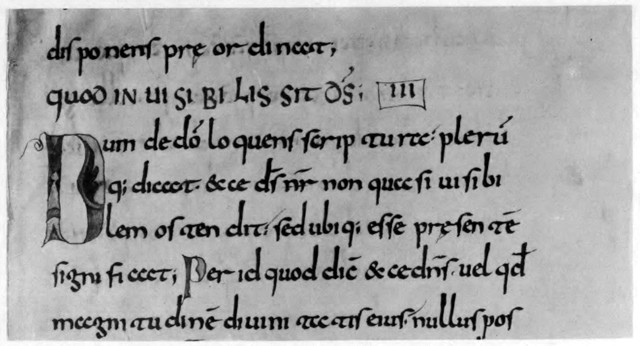 disponens pręordinat;
QUOD INUISIBILIS SIT DS̄; III
Dum de dō loquens scriptura: plerū
q; dicat. &ce ds̄ nr̄ non quasi uisibi
lem ostendit: sed ubiq; esse pręsentē
significat; Per id quod dic̄ &ce dns̄. uel qđ
magnitudinē diuinitatis eius. nullus pos